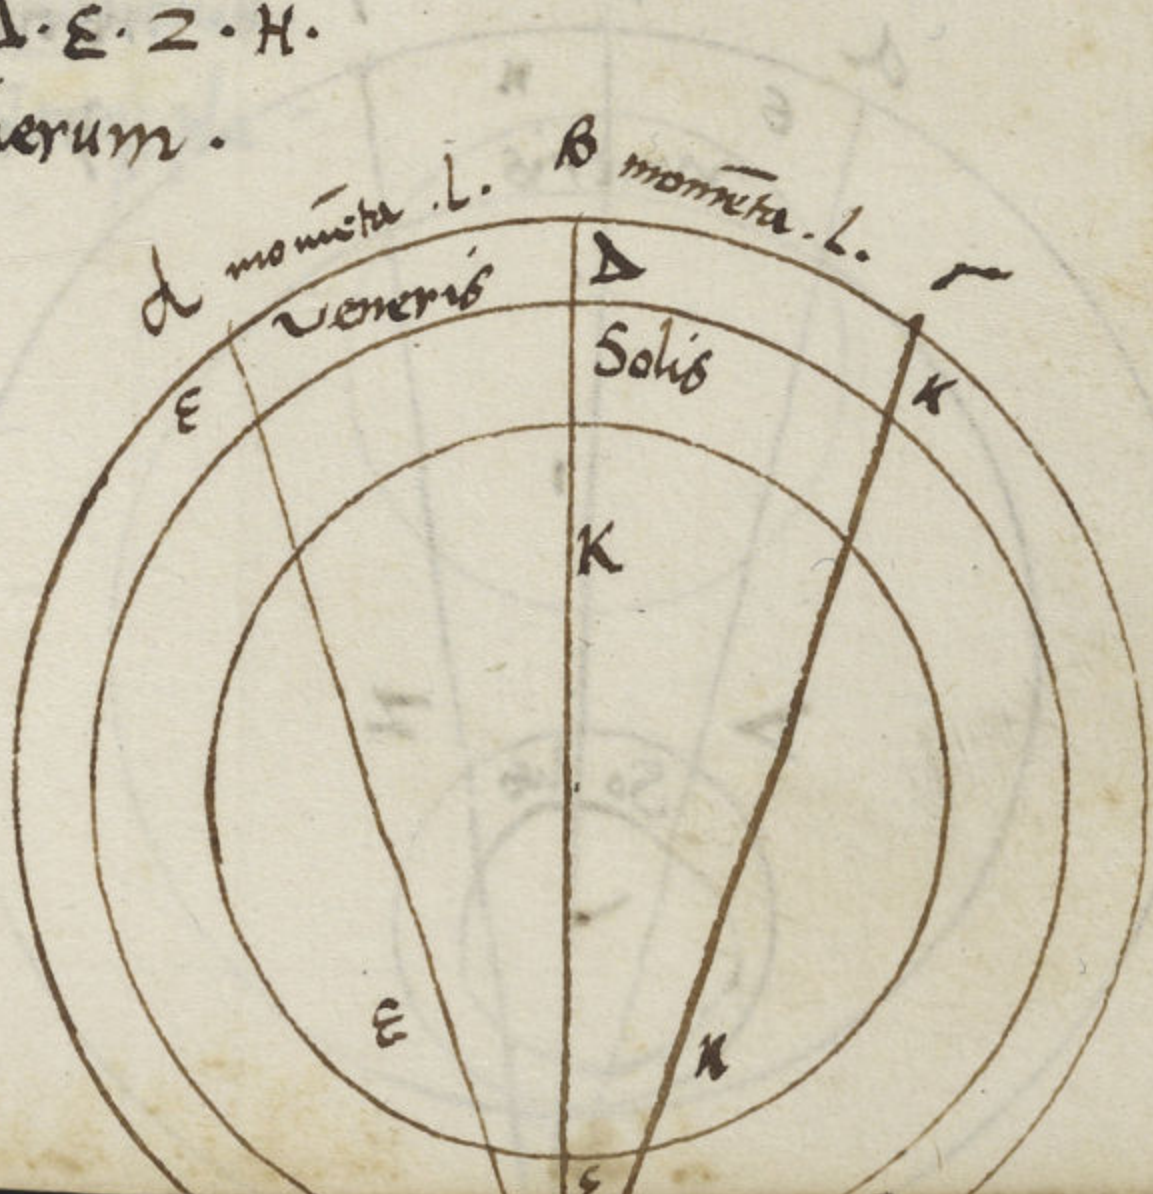 Δ·Ε·Ζ·Η·
erum.
B
α momēta .l. momēta .l. Γ
Veneris Δ
Solis
ε K
K
ε K
ε